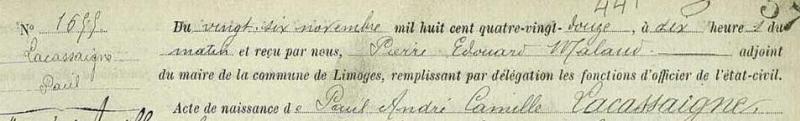 441
Nº 1655
Lacassaigne
Paul
Du vingt-six novembre mil huit cent quatre-vingt-douze, à dix heures du
matin et reçu par nous, Pierre Edouard Malaud adjoint
du maire de la commune de Limoges, remplissant par délégation les fonctions d'officier de l'état-civil.
Acte de naissance de Paul André Camille Lacassaigne,